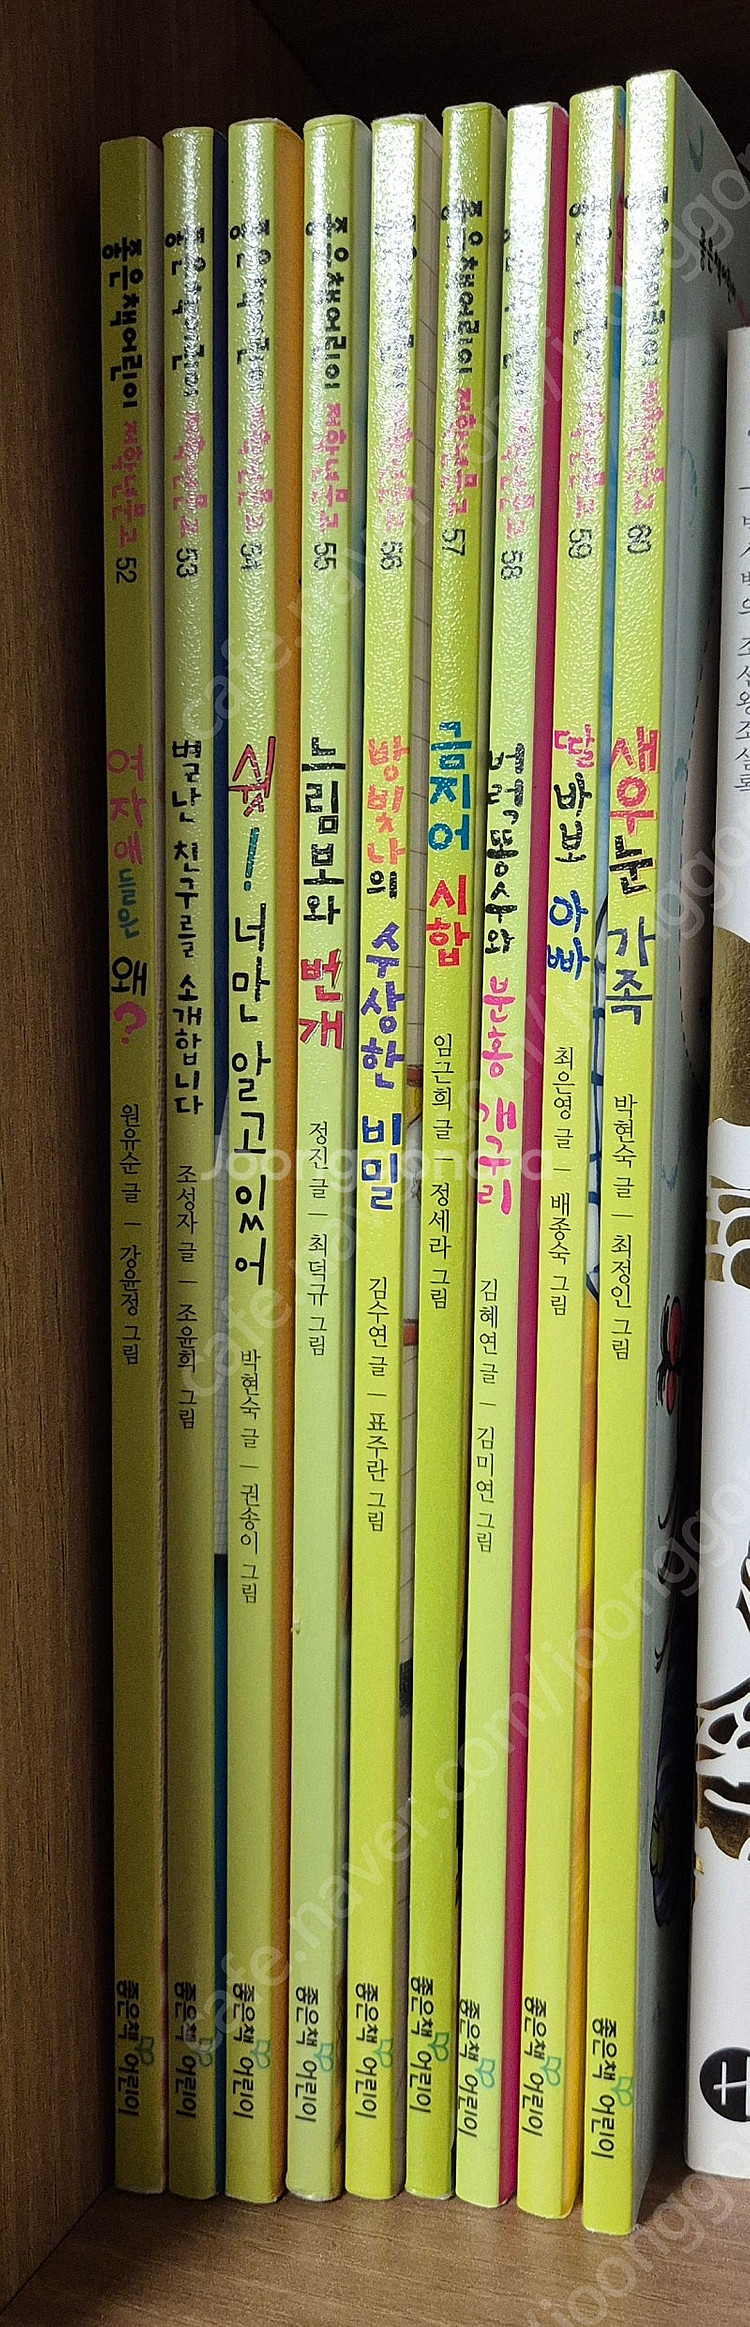 좋은책어린이 저학년문고 52
여자애들은 왜?
원유순 글 ㅣ 강윤정 그림
좋은책어린이
좋은책어린이 저학년문고 53
별난 친구를 소개합니다
조성자 글 ㅣ 조윤희 그림
좋은책어린이
좋은책어린이 저학년문고 54
쉿! 너만 알고 있어
박현숙 글 ㅣ 권송이 그림
좋은책어린이
좋은책어린이 저학년문고 55
느림보와 번개
정진 글 ㅣ 최덕규 그림
좋은책어린이
좋은책어린이 저학년문고 56
방빛나의 수상한 비밀
김수연 글 ㅣ 표주란 그림
좋은책어린이
좋은책어린이 저학년문고 57
금지어 시합
임근희 글 ㅣ 정세라 그림
좋은책어린이
좋은책어린이 저학년문고 58
벼락똥수와 분홍 개구리
김혜연 글 ㅣ 김미연 그림
좋은책어린이
좋은책어린이 저학년문고 59
딸 바보 아빠
최은영 글 ㅣ 배종숙 그림
좋은책어린이
좋은책어린이 저학년문고 60
새우눈 가족
박현숙 글 ㅣ 최정인 그림
좋은책어린이
조선왕조실록
Joonggonara
cafe.naver.com/joonggonara